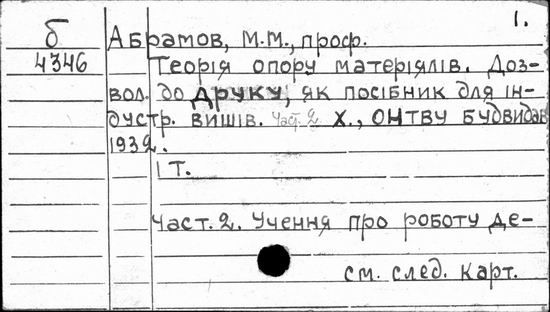 1.
б
4346
Абрамов, М.М., проф.
Теорія опору матеріялів. Доз-
вол. до друку, як посібник для ін-
дустр. вишів. Част. 2 Х., ОНТВУ Будвидав
1932.
1 т.
Част. 2. Учення про роботу де-
см. след. карт.